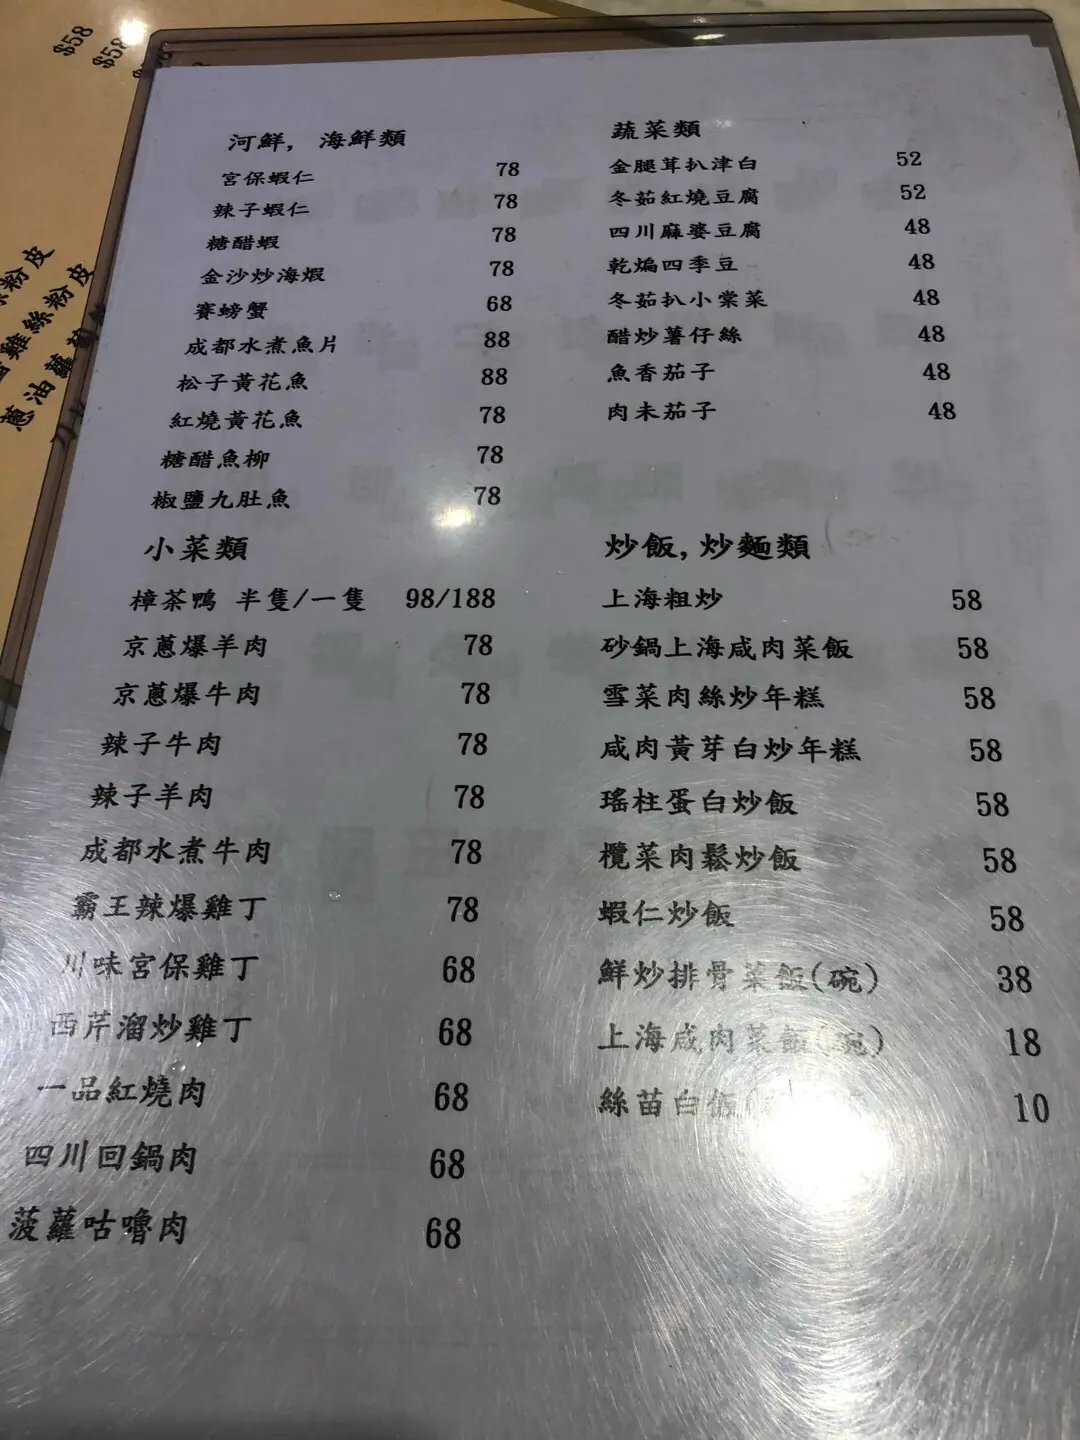 $58
$58
絲粉皮
雞絲粉皮
蔥油蘿
河鮮, 海鮮類
宮保蝦仁 78
辣子蝦仁 78
糖醋蝦 78
金沙炒海煆 78
賽螃蟹 68
成都水煮魚片 88
松子黃花魚 88
紅燒黃花魚 78
糖醋魚柳 78
椒鹽九肚魚 78
小菜類
樟茶鴨 半隻/一隻 98/188
京蔥爆羊肉 78
京蔥爆牛肉 78
辣子牛肉 78
辣子羊肉 78
成都水煮牛肉 78
霸王辣爆雞丁 78
川味宮保雞丁 68
西芹溜炒雞丁 68
一品紅燒肉 68
四川回鍋肉 68
菠蘿咕嚕肉 68
蔬菜類
金腿茸扒津白 52
冬茹紅燒豆腐 52
四川麻婆豆腐 48
乾煸四季豆 48
冬茹扒小棠菜 48
醋炒薯仔絲 48
魚香茄子 48
肉未茄子 48
炒飯, 炒麵類
上海粗炒 58
砂鍋上海咸肉菜飯 58
雪菜肉絲炒年糕 58
咸肉黃芽白炒年糕 58
瑤柱蛋白炒飯 58
欖菜肉鬆炒飯 58
蝦仁炒飯 58
鮮炒排骨菜飯(碗) 38
上海咸肉菜飯(碗) 18
絲苗白飯( 10